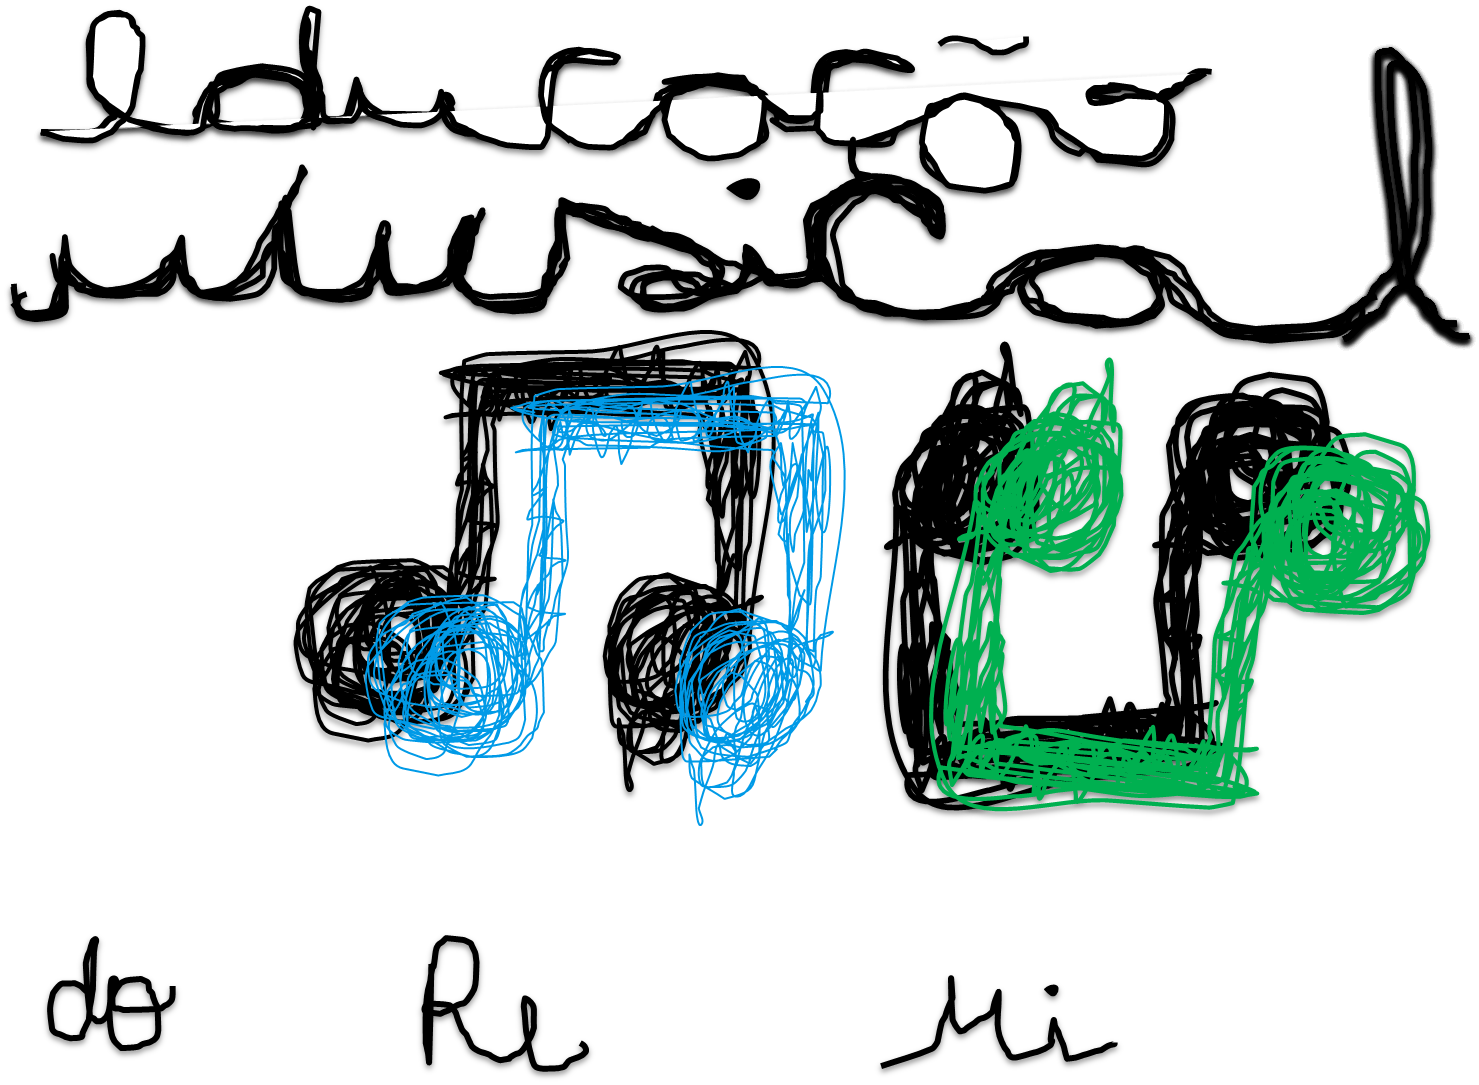 educação
musical
do Re Mi